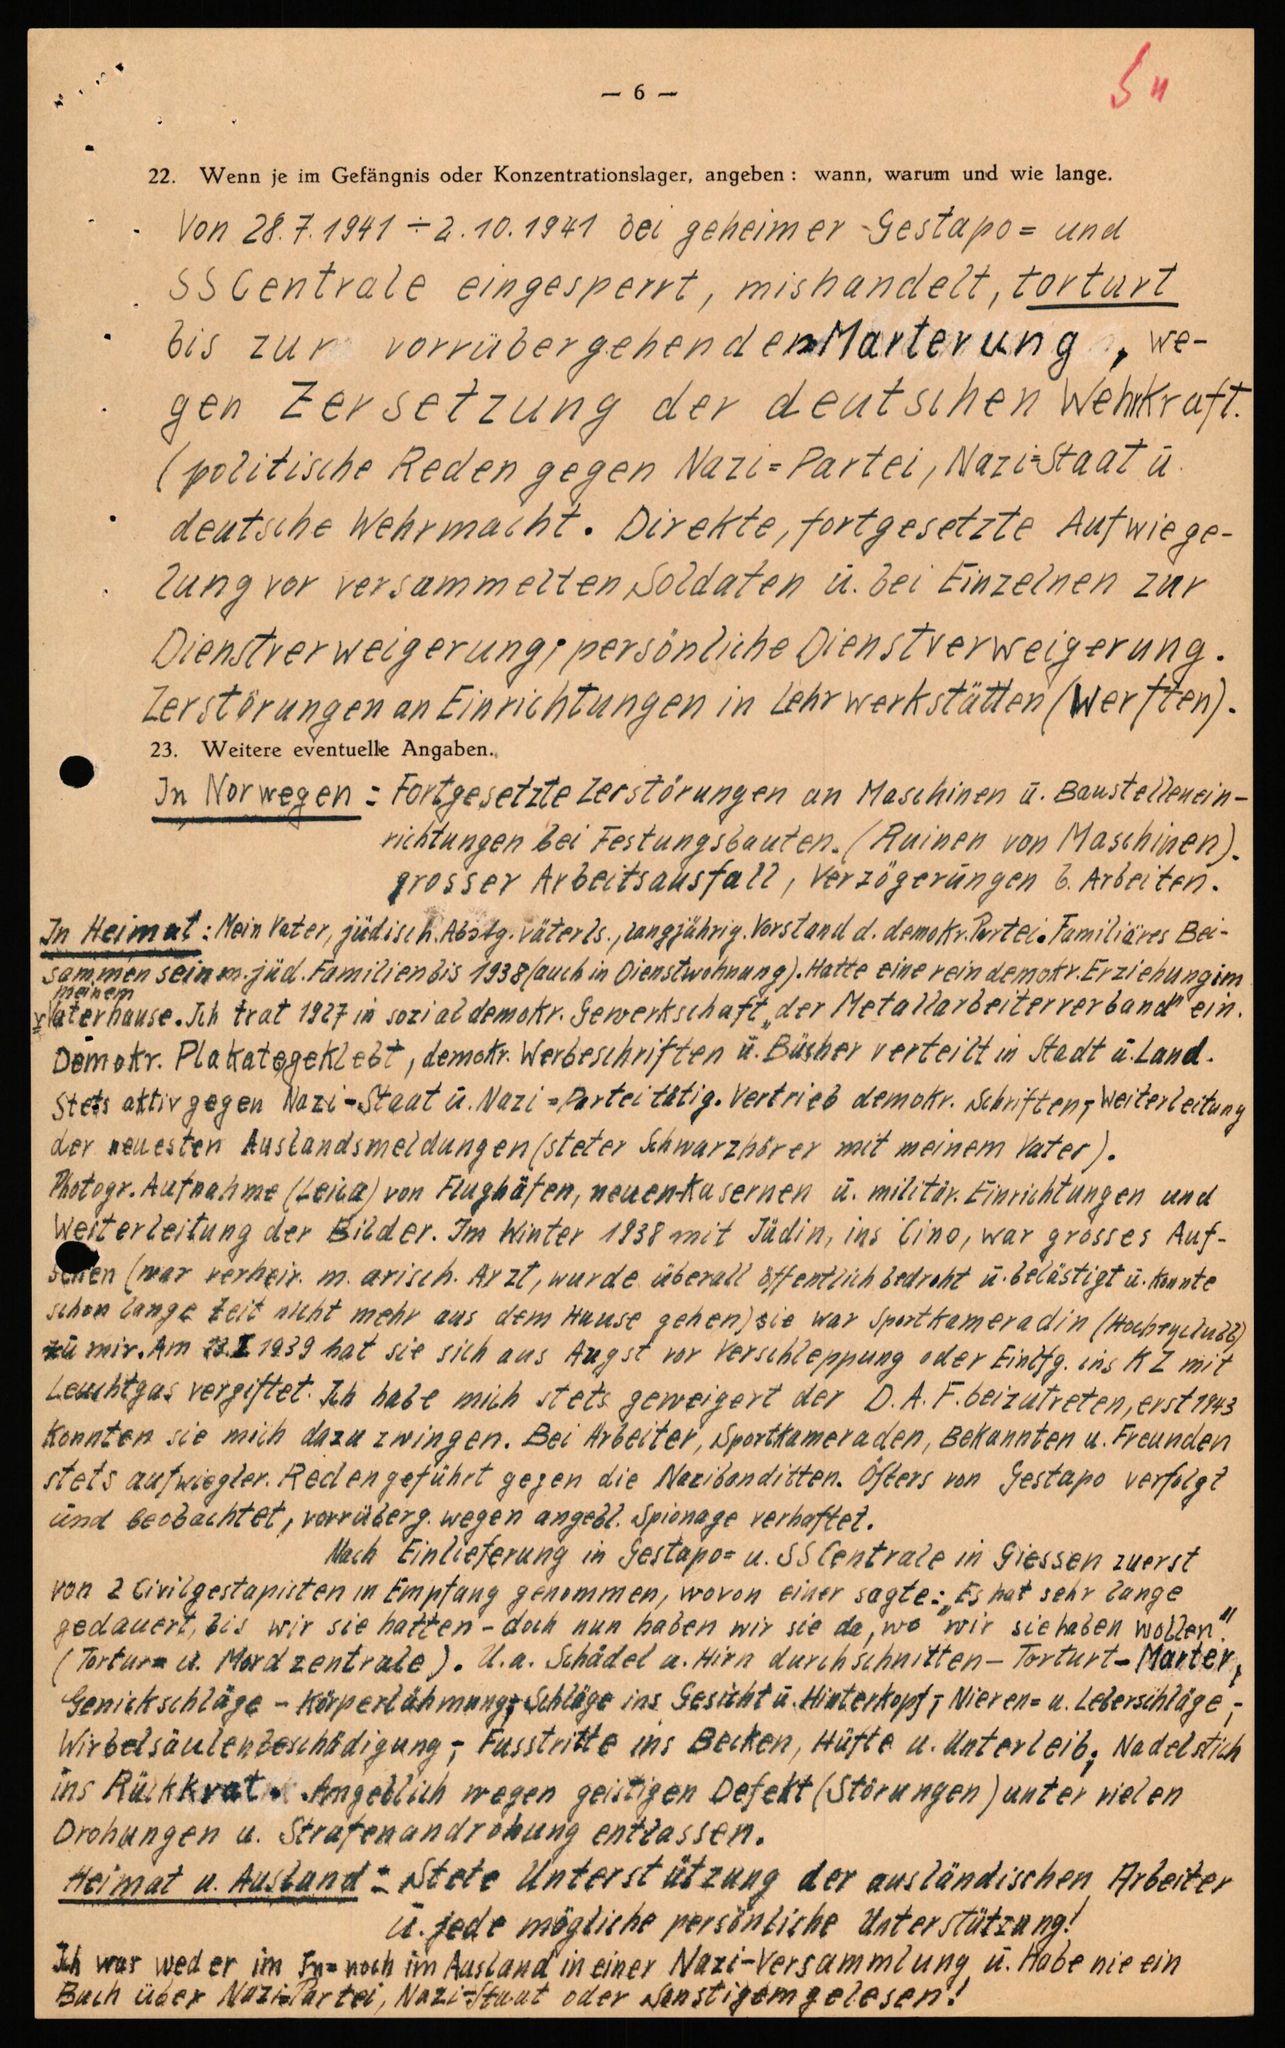 — 6 —
22. Wenn je im Gefängnis oder Konzentrationslager, angeben: wann, warum und wie lange.
Von 28.7.1941 ÷ 2.10.1941 bei geheimer Gestapo= und
SS Centrale eingesperrt, mishandelt, torturt
bis zur vorrübergehenden Marterung, we-
gen Zersetzung der deutschen Wehrkraft.
(politische Reden gegen Nazi=Partei, Nazi=Staat ü.
deutsche Wehrmacht. Direkte, fortgesetzte Aufwiege-
lung vor versammelten Soldaten ü. bei Einzelnen zur
Dienstverweigerung; persönliche Dienstverweigerung.
Zerstörungen an Einrichtungen in Lehrwerkstätten (Werften).
23. Weitere eventuelle Angaben.
In Norwegen: Fortgesetzte Zerstörungen an Maschinen ü. Baustellenein-
richtungen bei Festungsbauten. (Ruinen von Maschinen).
grosser Arbeitsausfall, Verzögerüngen b. Arbeiten.
In Heimat: Mein Vater, jüdisch. Abstg. väterls., langjährig. Vorstand d. demokr. Partei. Familiäres Bei-
sammensein m. jüd. Familien bis 1938 (auch in Dienstwohnung). Hatte eine rein demokr. Erziehung im
meinem
Vaterhause. Ich trat 1927 in sozialdemokr. Gewerkschaft „der Metallarbeiterverband" ein.
Demokr. Plakate geklebt, demokr. Werbeschriften ü. Bücher verteilt in Stadt ü. Land.
Stets aktiv gegen Nazi-Staat ü. Nazi=Partei tätig. Vertrieb demokr. Schriften, Weiterleitung
der neuesten Auslandsmeldungen (steter Schwarzhörer mit meinem Vater).
Photogr. Aufnahme (Leica) von Flughäfen, neuen Kasernen ü. militär. Einrichtungen und
Weiterleitung der Bilder. Im Winter 1938 mit Jüdin, ins Cino, war grosses Auf-
sehen (war verheir. m. arisch. Arzt, wurde überall öffentlich bedroht ü. belästigt ü. konnte
schon lange Zeit nicht mehr aus dem Hause gehen) sie war Sportkameradin (Hockeyclubb)
zü mir. Am 1939 hat sie sich aus Angst vor Verschleppung oder Einlfg. ins KZ mit
Leuchtgas vergiftet. Ich habe mich stets geweigert der D.A.F. beizutreten, erst 1943
konnten sie mich dazu zwingen. Bei Arbeiter, Sportkameraden, Bekannten u. Freunden
stets aufwiegler. Reden geführt gegen die Nazibanditten. Öfters von Gestapo verfolgt
ünd beobachtet, vorrüberg. wegen angebl. Spionage verhaftet.
Nach Einlieferung in Gestapo= u. SS Centrale in Giessen zuerst
von 2 Civilgestapisten in Empfang genommen, wovon einer sagte: „Es hat sehr lange
gedauert, bis wir sie hatten - doch nun haben wir sie da, wo wir sie haben wollen."
(Tortur= u. Mordzentrale). U.a. Schädel u. Hirn durchschnitten - Torturt - Marter,
Genickschläge - Körperlähmung; Schläge ins Gesicht ü. Hinterkopf; Nieren= u. Leberschläge;
Wirbelsäulenbeschädigung; Fusstritte ins Becken, Hüfte u. Unterleib; Nadelstich
ins Rückkrat. Angeblich wegen geistigen Defekt (Störungen) unter vielen
Drohungen u. Strafenandrohung entlassen.
Heimat u. Ausland: Stete Unterstützung der ausländischen Arbeiter
ü. jede mögliche persönliche Unterstützung!
Ich war weder im In= noch im Ausland in einer Nazi-Versammlung ü. Habe nie ein
Buch über Nazi=Partei, Nazi=Staat oder Sonstigem gelesen!